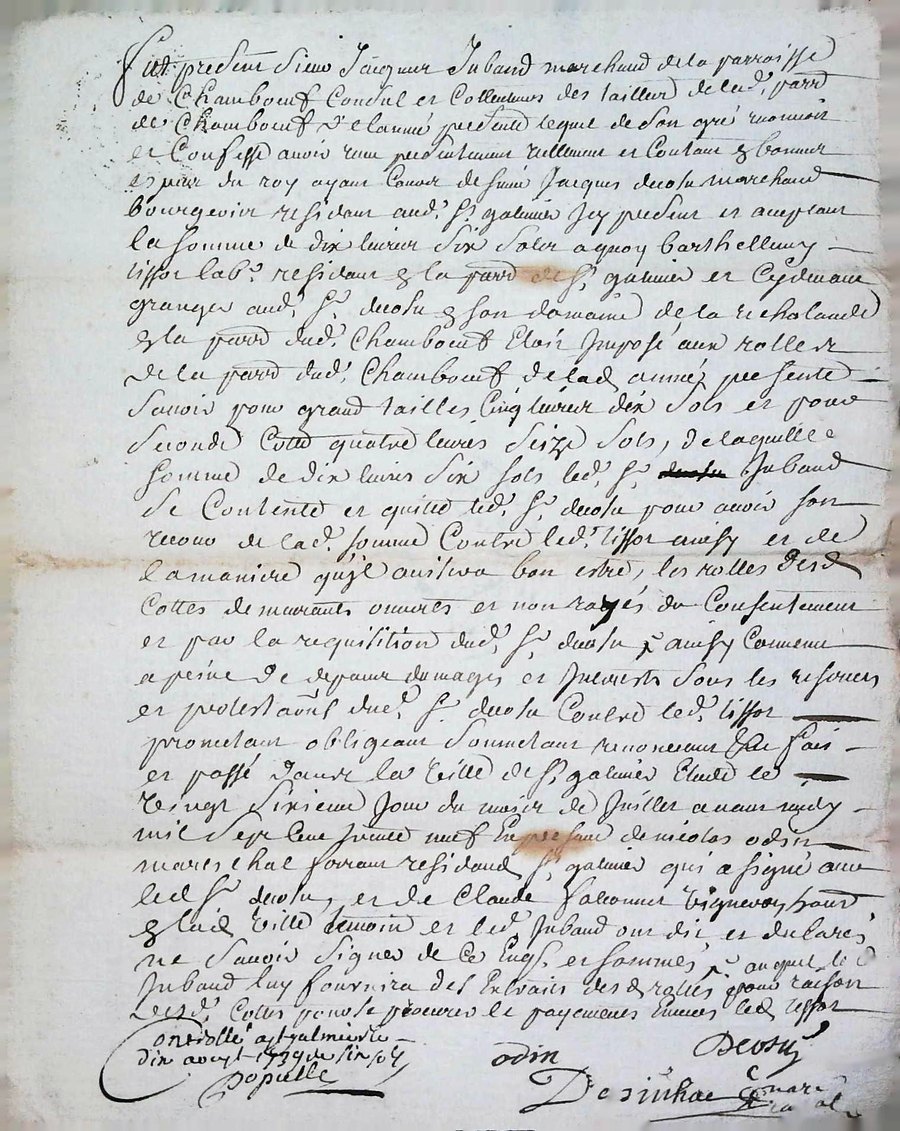 Fut present Sieur Jacques Jubaud marchand de la parroisse
de Chamboeuf Consul et Collecteur des tailles de lad. parr
de Chamboeuf de lannée presente lequel de son gré reconnoit
et Confesse avoir receu presentement réellement et Contant en bonnes
especes du roy ayant Cours de sieur Jacques decosu marchand
bourgeois residant aud. St. galmier Icy present et aceptant
la somme de dix livres six sols a quoy barthellemy
tissot labr. residant en la parr de St. galmier et Cydevant
granger aud. Sr. decosu en son domaine de la richolande
en la parr dud. Chamboeuf Etoit Imposé aux rolles
de la parr dud. Chamboeuf de lad année presente
Savoir pour grand tailles Cinq livres dix Sols et pour
Seconde Cotte quatre livres Seize Sols, de laquelle
somme de dix livres six sols led. Sr. Jubaud
Se Contente et quitte led. Sr. decosu pour avoir son
recour de lad. somme Contre led. tissot ainsy et de
la maniere quil avisera bon estre, les rolles desd
Cottes demeurants ouvertes et non rayés du Consentement
et par la requisition dud. Sr. decosu ainsy Convenu
a peine de depens dommages et Interests Sous les reserves
et protestaons dud. Sr. decosu Contre led. tissot
promettant obligeant Soumettant renonceant fait
et passé dans la ville de St. galmier Etude le
vingt Sixieme Jour du mois de Juillet avant midy
mil Sept Cent trente neuf En presence de nicolas odin
mareschal ferrant residand St. galmier qui a signé avec
led Sr. decosu, et de Claude faconnet vigneron
en lad ville temoin et led. Jubaud ont dit et declarés
ne Savoir Signer de Ce Enqs. et sommés, auquel led
Jubaud luy fournira des Extraits desd rolles pour raison
desd. Cottes pour se procurer le payement Envers led tissot
Controllé a st galmier le
dix aoust 1739
odin
Decosu